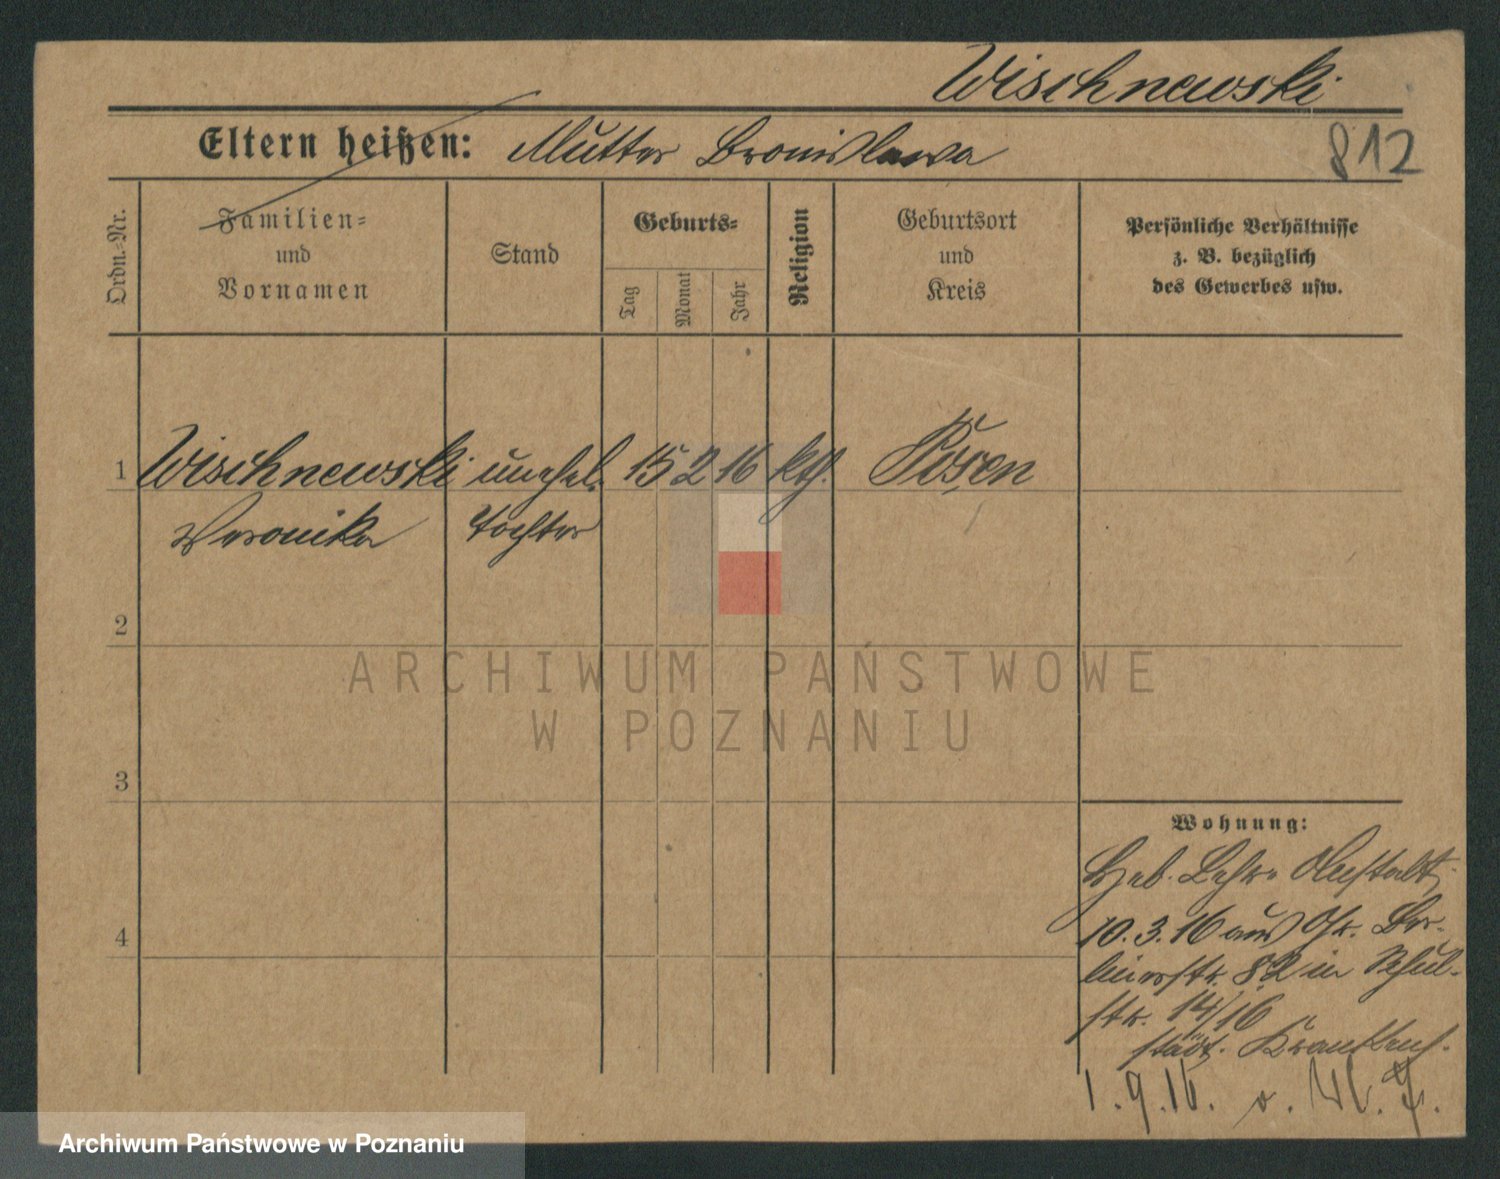 Wischnewski
Eltern heißen: Mutter Bronislawa
812
Ordn.-Nr.
Familien-
und
Vornamen
Stand
Geburts-
Tag
Monat
Jahr
Religion
Geburtsort
und
Kreis
Persönliche Verhältnisse
z. B. bezüglich
des Gewerbes usw.
1 Wischnewski unehel. 15 2 16 kth. Posen
Veronika Tochter
2
ARCHIWUM PAŃSTWOWE
W POZNANIU
3
Wohnung:
Heb. Lehr- Anstalt
4
10.3.16 aus Gr. Ber-
linerstr. 82 in Schul-
str. 14/16
städt. Krankenh.
1.9.16.
Archiwum Państwowe w Poznaniu